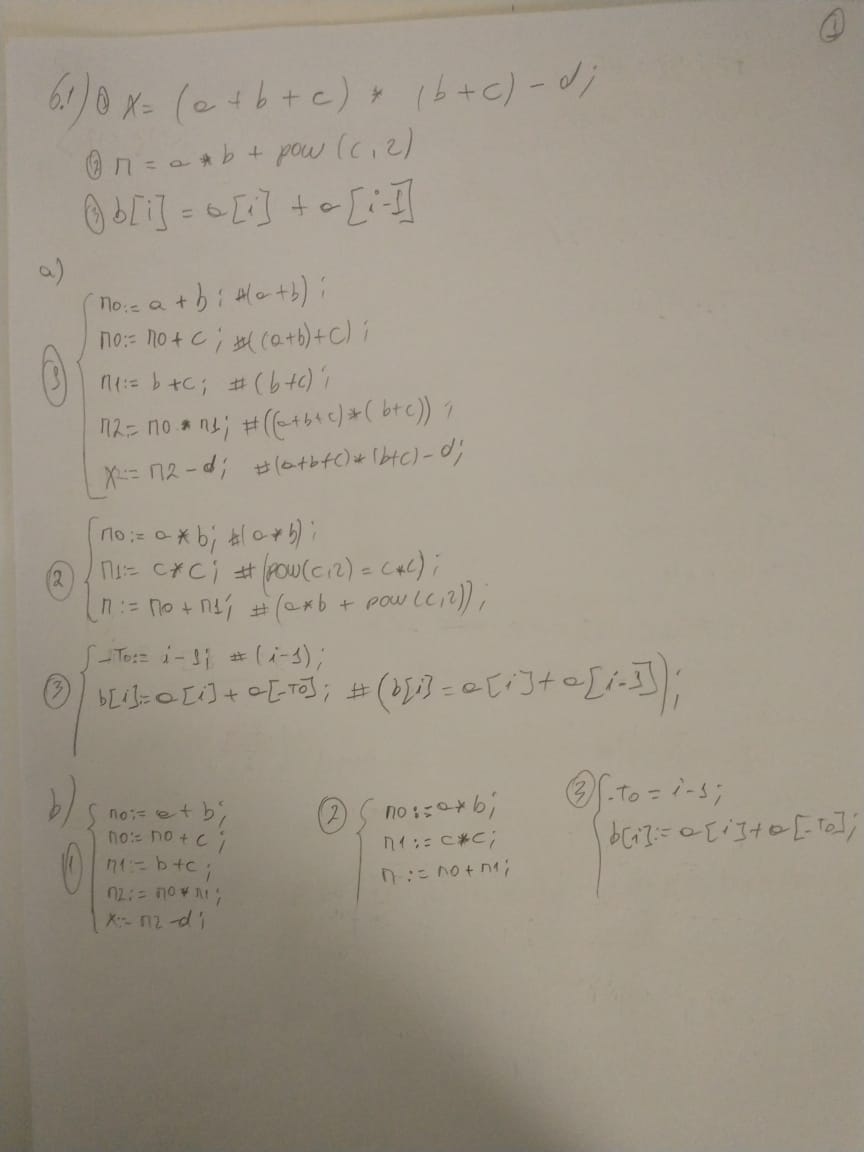 1
6.1) ① x = (a + b + c) * (b + c) - d;
② n = a * b + pow (c, 2)
③ b[i] = a[i] + a[i-1]
a)
① n0:= a + b; #(a+b);
n0:= n0 + c; #((a+b)+c);
n1:= b + c; #(b+c);
n2:= n0 * n1; #((a+b+c)*(b+c));
x:= n2 - d; #(a+b+c)*(b+c)-d;
② n0:= a * b; #(a*b);
n1:= c*c; #(pow(c,2) = c*c);
n:= n0 + n1; #(a*b + pow(c,2));
③ -T0:= i-1; #(i-1);
b[i]:= a[i] + a[-T0]; #(b[i] = a[i] + a[i-1]);
b)
① n0:= a + b;
n0:= n0 + c;
n1:= b + c;
n2:= n0 * n1;
x:= n2 - d;
② n0:= a*b;
n1:= c*c;
n:= n0 + n1;
③ -T0 = i-1;
b[i]:= a[i] + a[-T0];